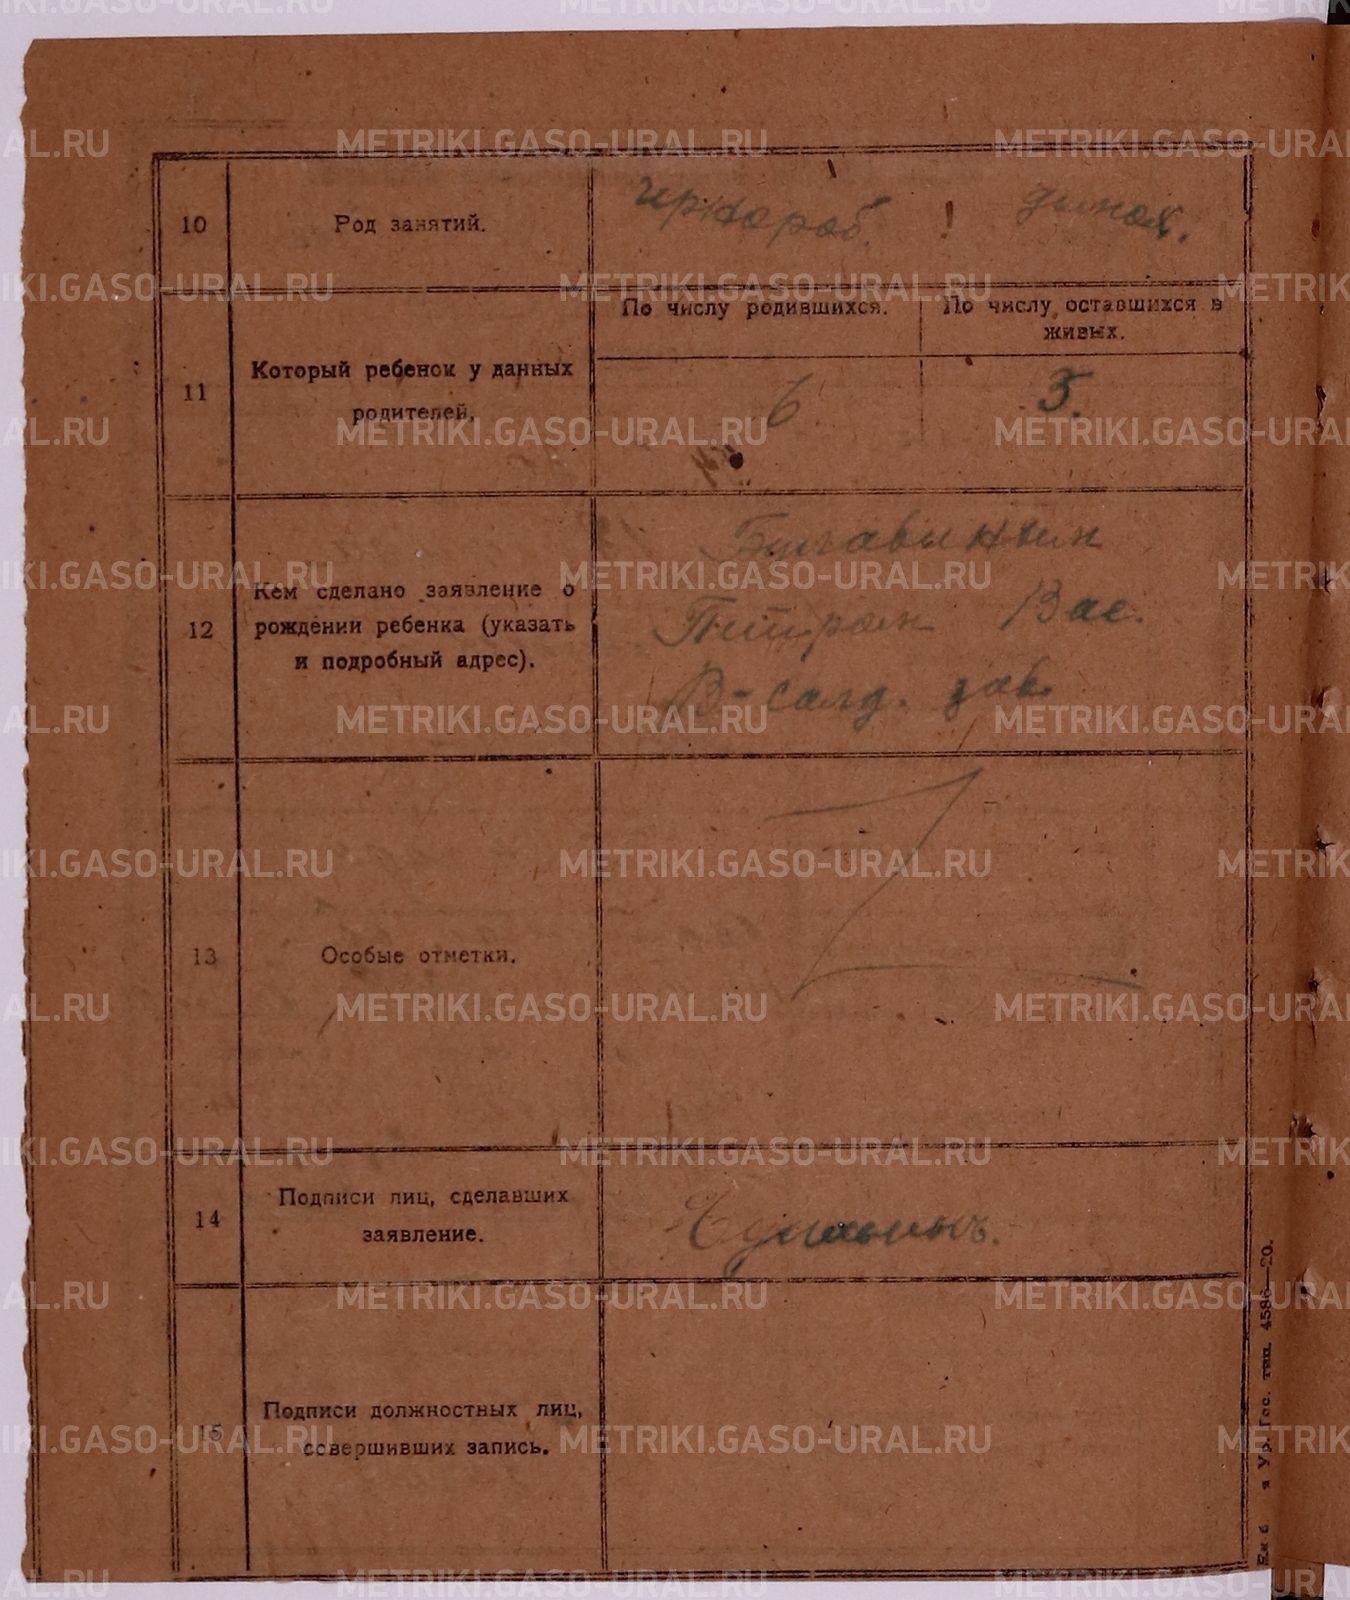 10
Род занятий.
чернораб.
домох.
11
Который ребенок у данных
родителей.
По числу родившихся.
По числу оставшихся в
живых.
6
5.
12
Кем сделано заявление о
рождении ребенка (указать
и подробный адрес).
Вас.
В-салд. зав.
13
Особые отметки.
14
Подписи лиц, сделавших
заявление.
15
Подписи должностных лиц,
совершивших запись.
Ур. Гос. тип. 4586—20.
METRIKI.GASO-URAL.RU